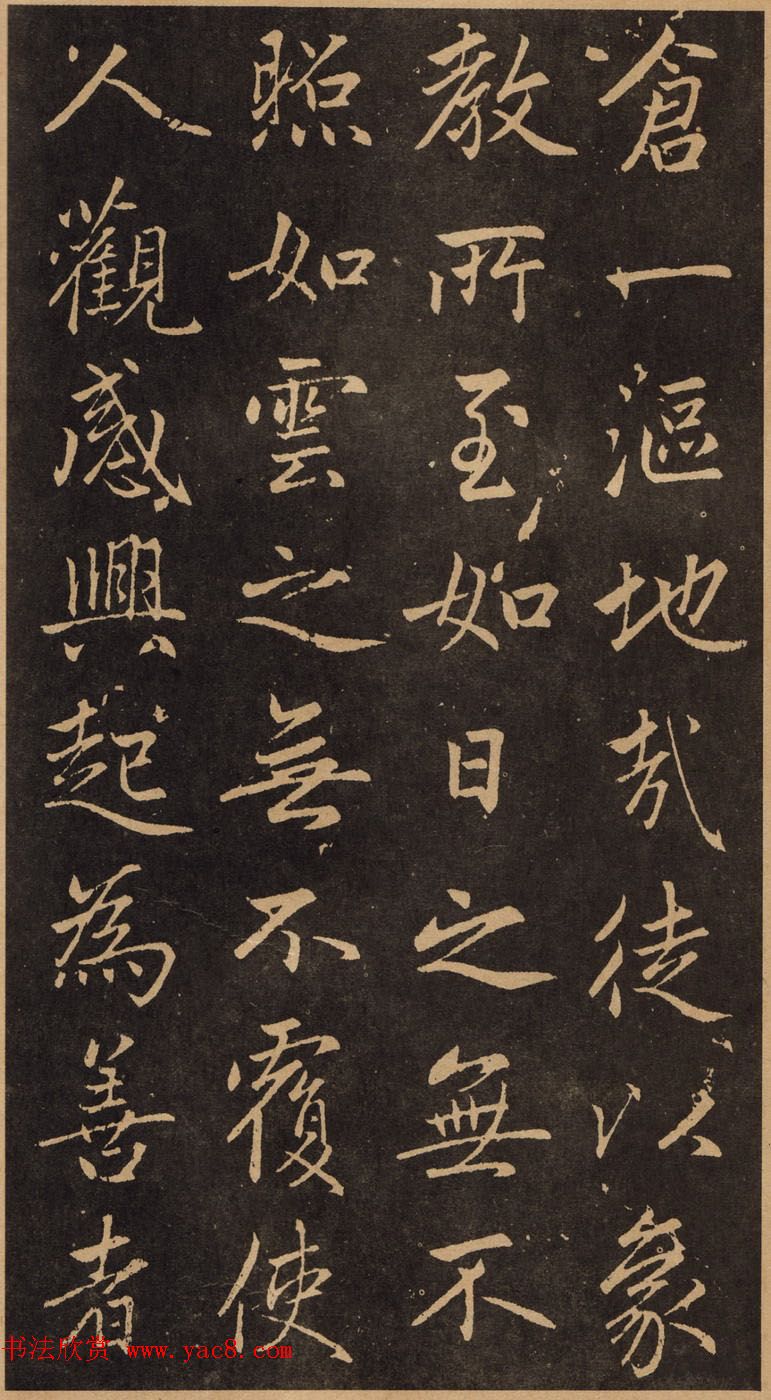 滄一漚地哉徒以象
教所至如日之無不
照如雲之無不覆使
人觀感興起為善者
书法欣赏 www.yac8.com